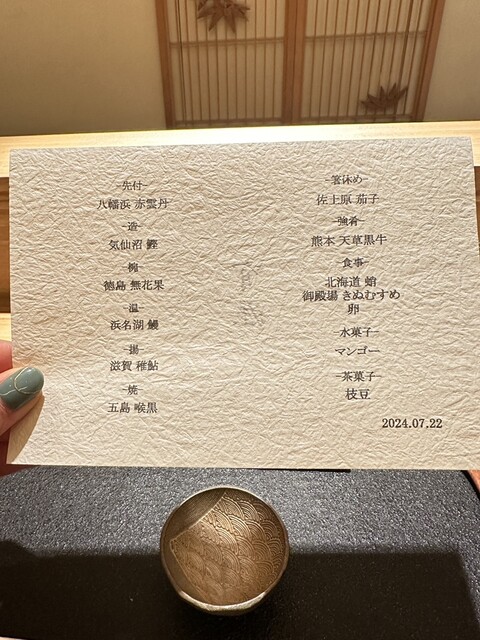 -先付-
八幡浜 赤雲丹
-造-
気仙沼 鰹
-椀-
徳島 無花果
-温-
浜名湖 鰻
-揚-
滋賀 稚鮎
-焼-
五島 喉黒
-箸休め-
佐土原 茄子
-強肴-
熊本 天草黒牛
-食事-
北海道 蛸
御殿場 きぬむすめ
卵
-水菓子-
マンゴー
-茶菓子-
枝豆
2024.07.22